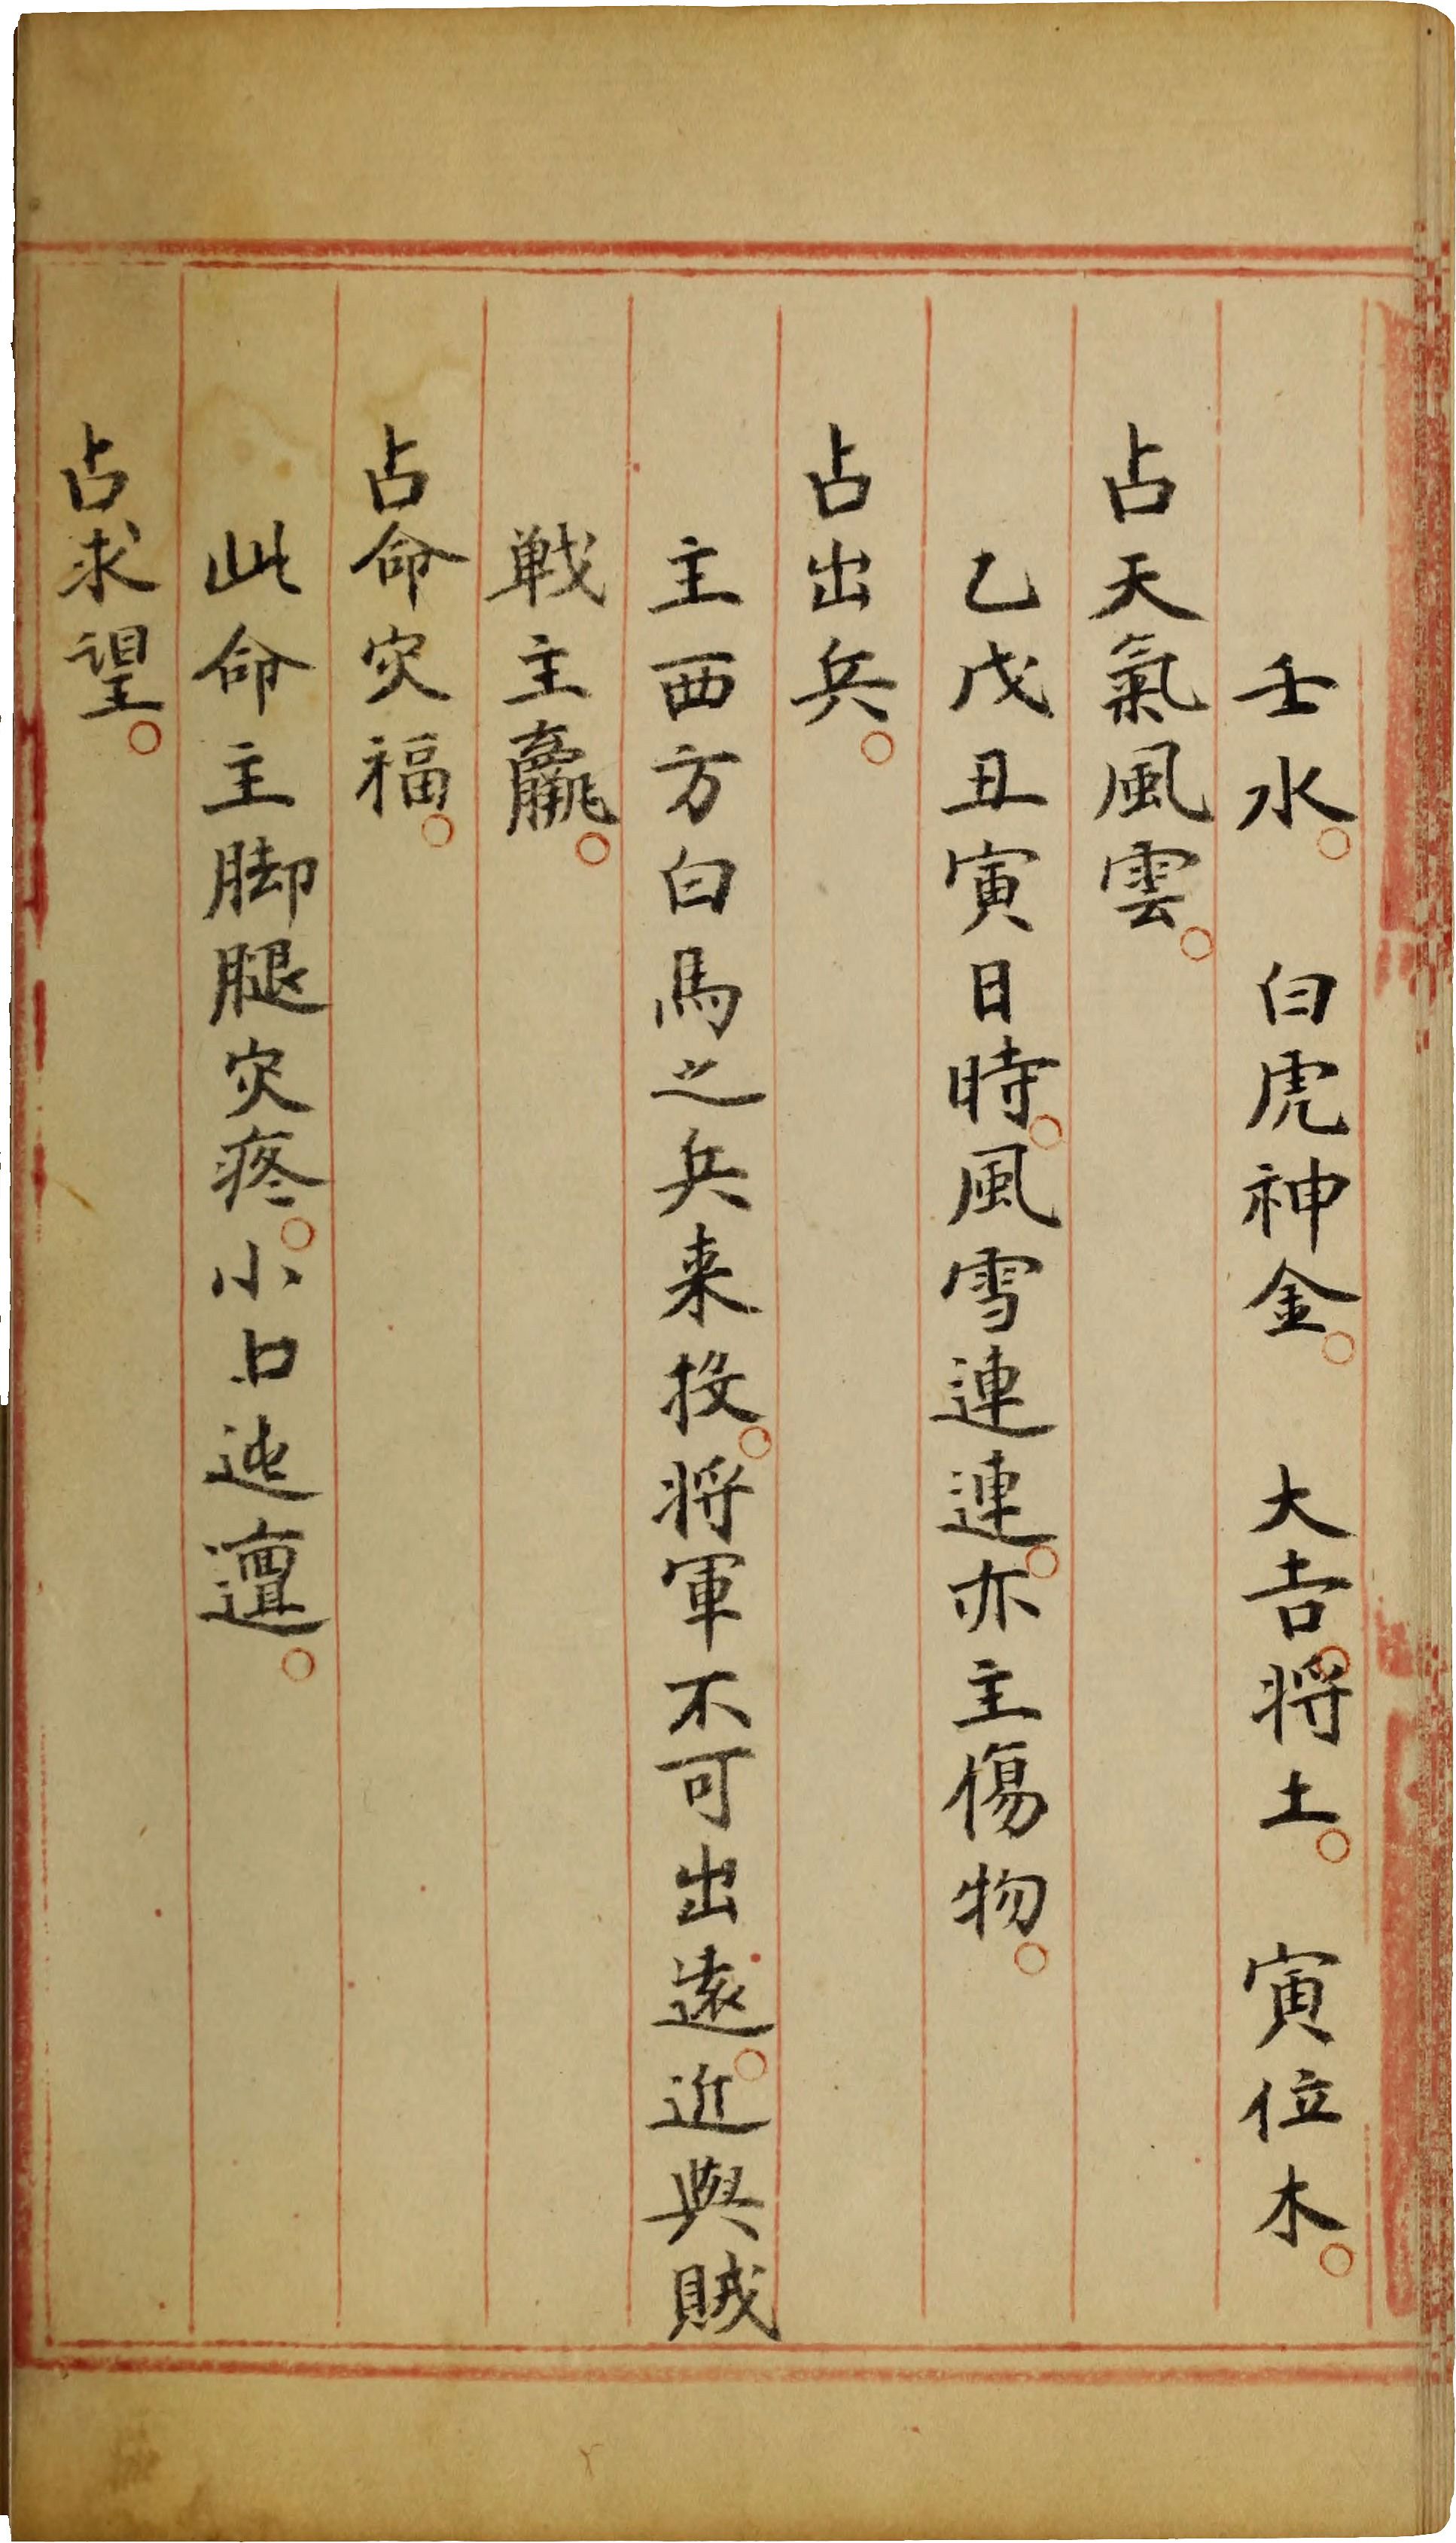 壬水。　白虎神金。　大吉。将土。　寅位木。
占天氣風雲。
乙戊丑寅日時。風雪連連。亦主傷物。
占出兵。
主西方白馬之兵来投。将軍不可出遠。近與賊
戦主贏。
占命灾福。
此命主脚腿灾疼。小口迍邅。
占求望。